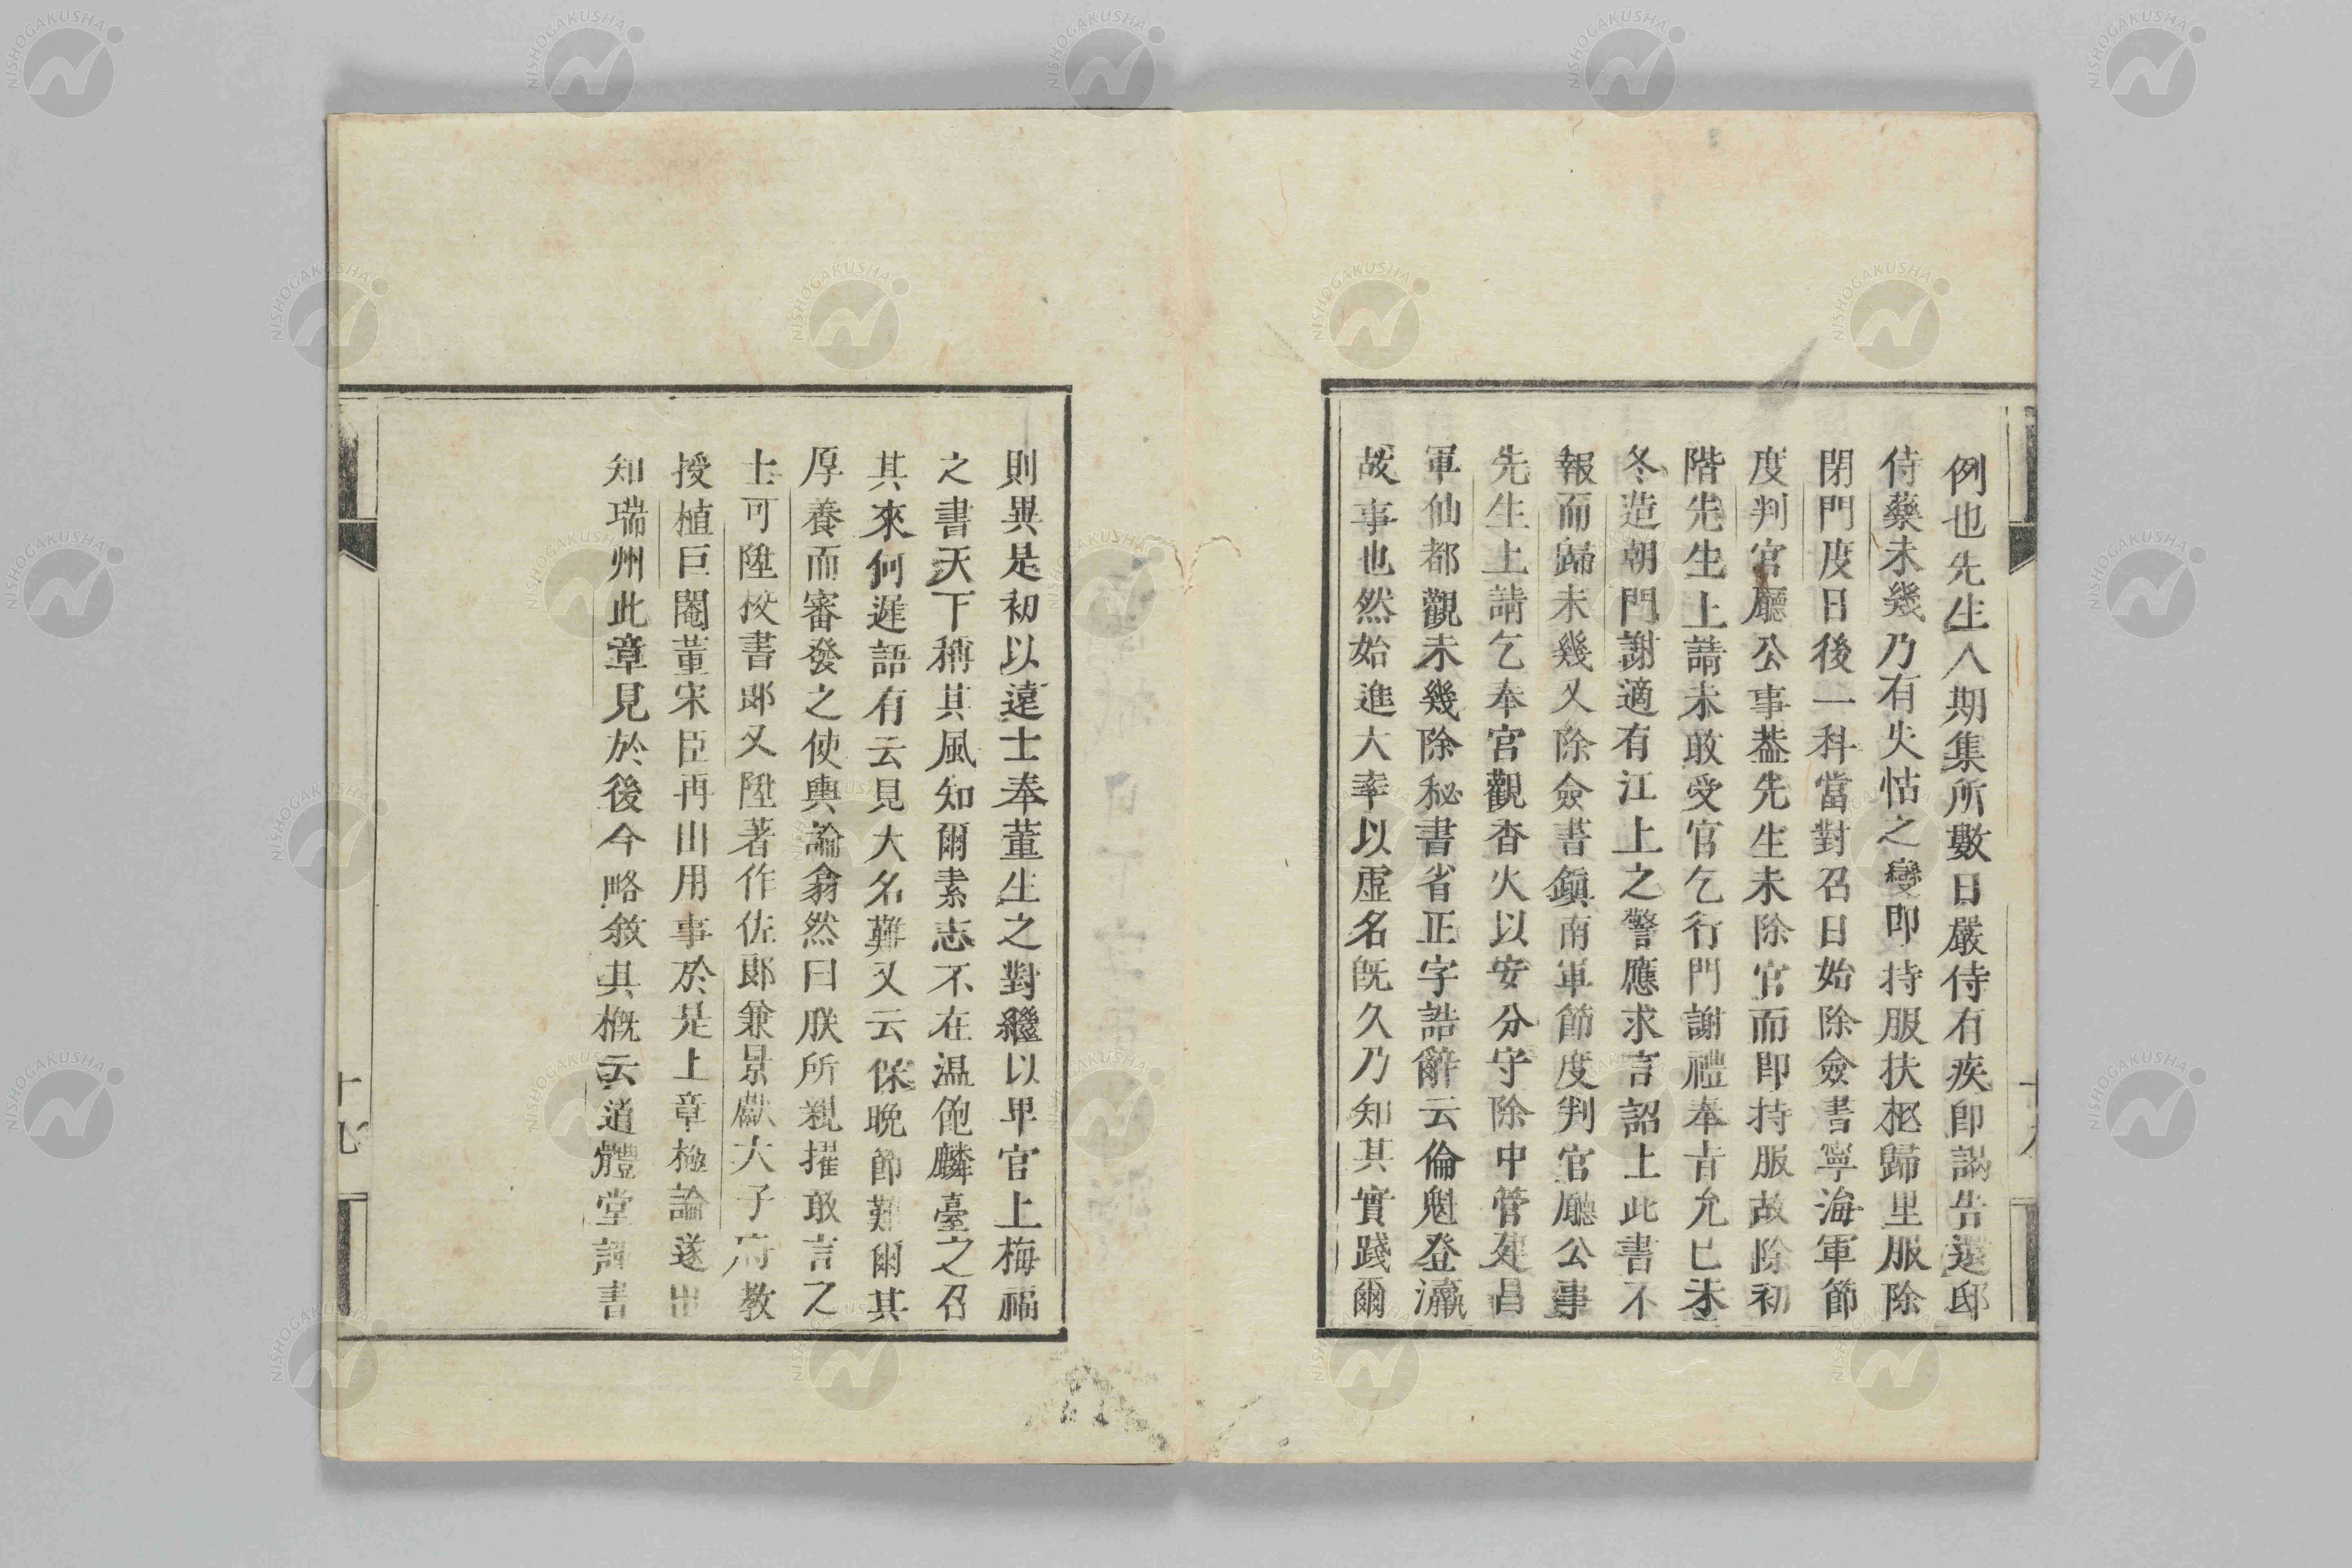 例也先生入期集所數日嚴侍有疾卽謁告還邸
侍藥未幾乃有失怙之變卽持服扶柩歸里服除
閉門度日後一科當對召日始除僉書寧海軍節
度判官廳公事葢先生未除官而卽持服故除初
階先生上請未敢受官乞行門謝禮奉旨允巳未
冬造朝門謝適有江上之警應求言詔上此書不
報而歸未幾又除僉書鎭南軍節度判官廳公事
先生上請乞奉官觀杳火以安分守除中管建昌
軍仙都觀未幾除秘書省正字誥辭云倫魁登瀛
故事也然始進大率以虛名旣久乃知其實踐爾
則異是初以遠士奉董生之對繼以卑官上梅福
之書天下稱其風知爾素志不在温飽麟臺之召
其來何遲語有云見大名難又云保晩節難爾其
厚養而審發之使輿論翕然曰朕所親擢敢言之
士可陞校書郞又陞著作佐郞兼景獻太子府敎
授植巨閹董宋臣再出用事於是上章極論遂出
知瑞州此章見於後今略敘其槪云道體堂謹書
十九
NISHOGAKUSHA